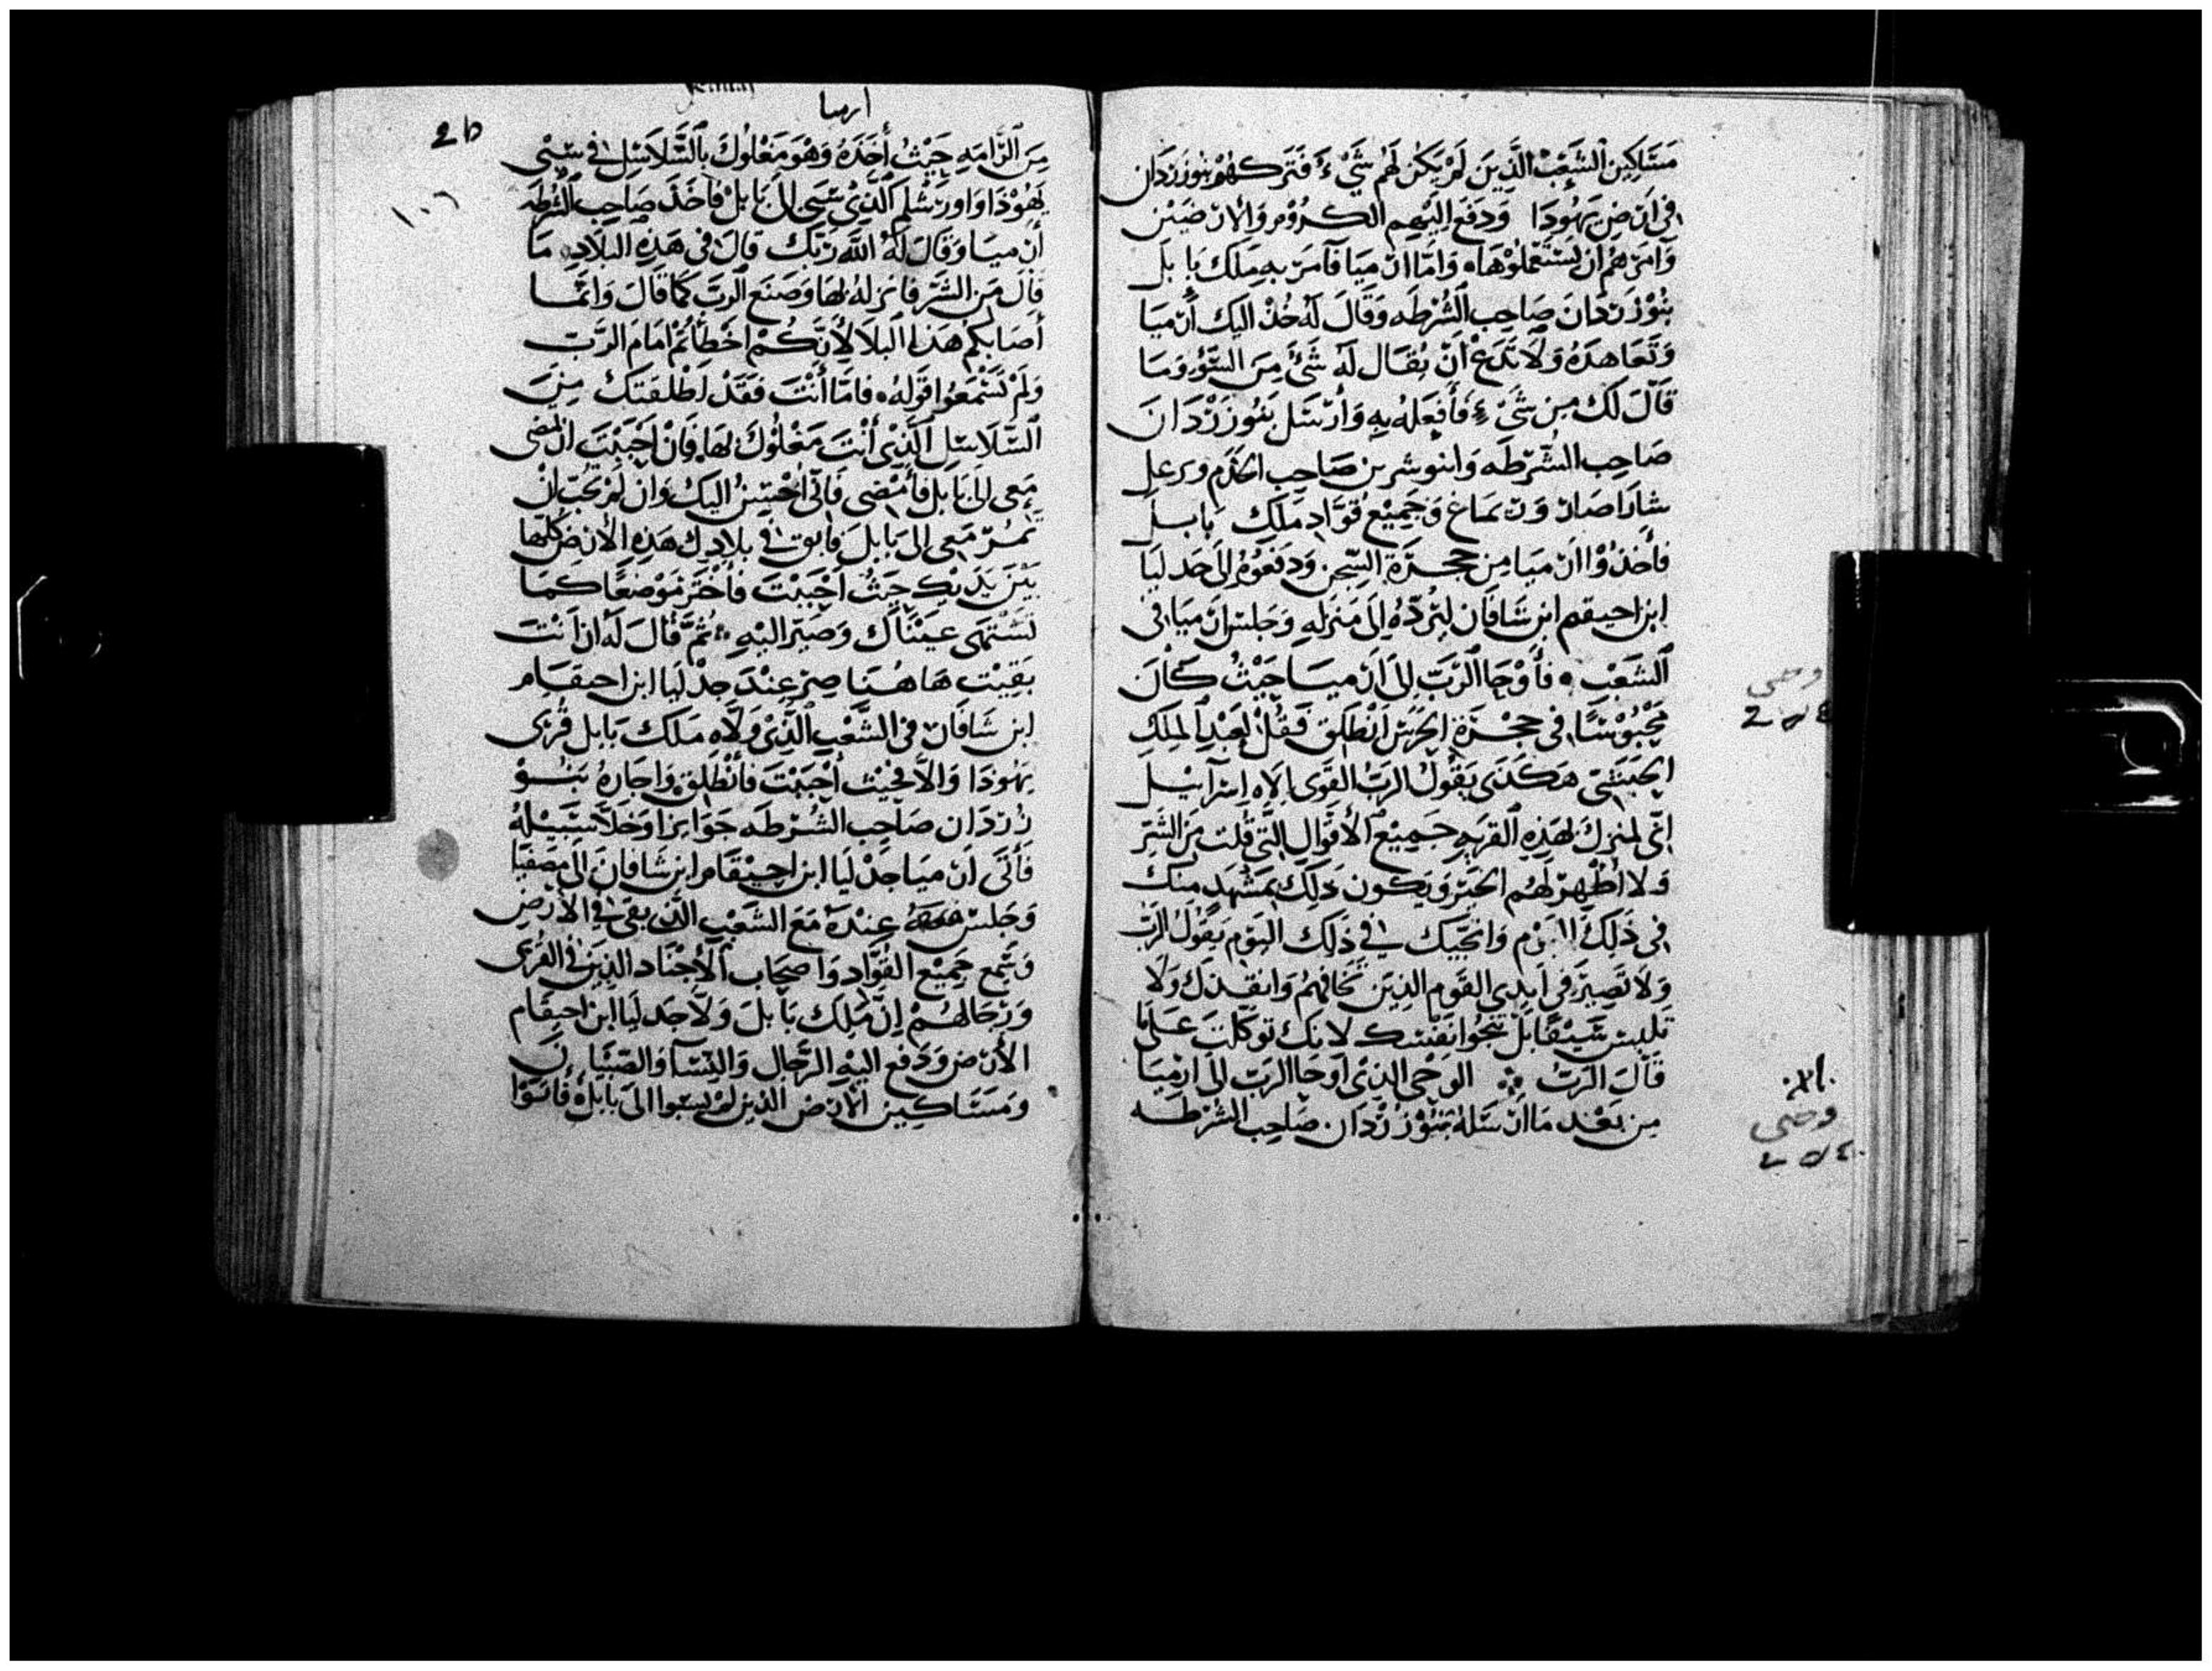 مَسَاكِين الشَعْبْ الذَّيِنَ لَمْ يَكُن لَهُم شَيْءٌ فَتَركهُمْ بنُوزَرَدَان
فِى ارْضِ يَهُودَا وَدَفَعَ اليَهِم الكُرُوْم وَالارَضيْن
وَامَرَهُم ان يَسْتَعْمِلوُهَا وَامَّا ارْميَا فَآمَرَ بهِ مَلِكَ بَابل
بنُوْزَرَدَانَ صَاحِب الشُرْطَه وَقَالَ لَهُ خُذْ اليَك أرْميَا
وَتعَاهَدهُ وَلاَ تَدَعْ أنْ يُقَال لَهُ شَئ مِنَ السُّوْ وَمَا
قَالَ لَكَ مِن شَىْءٍ فَأفعَلهُ بهِ وَأرْسَل بَنُوزَرْدَانَ
صَاحِب الشُّرْطَه وَانوشر بن صَاحِب الخَدَم ورعل
شارَاصَار وَرَىماغ وَجَمِيْع قوَّاد مَلَك بابل
فأخَذوُا ارْميَا مِن حجْرَة السِّجن وَدفَعوُهُ اِلىَ جَدليَا
ابن احيقم ابن شَافَان ليَرُدّهُ اِلىَ مَنزلهِ وَجَلسَ ارْميَا فى
الشَعْب فأوْحَا الرَّبَ اِلىَ ارْميَا حَيْثُ كَانَ
مَحْبُوْسًا فى حجْرَة الحَرَسْ انْطَلِق فَقُلْ لِعَبْدِ المَلِكِ
الحَبَشىّ هَكَذَى يَقُولُ الرَبُ القَوى اِلاه اِسرَآييل
انّى لمنزِل لِهَذِهِ القَريهِ جَمِيْع الأقوَال التَّى قُلت مِنَ الشَّرّ
وَلا أظْهِرْ لَهُم الخَيْر وَيَكون ذَلِكَ بمَشْهَدٍ مِنك
فى ذَلِكَ اليَوْم وَانجّيَك فى ذَلِك اليَوْم يَقُولُ الرَّبّ
وَلا تَصِيْر فى اَيدِى القَوم الذِيَن تَخَافهُمْ وَانقذك وَلا
تَليسَ شَيْئًا بَلْ تَنجُوا بنَفْسك لانك توكلتَ عَلَيَّا
قَالَ الرَبّ الوَحْى الذِى اوحَا الرَبّ اِلىَ ارْميَا
مِن بَعْد مَا ارْسَلهُ بنُوْزرْدَان صَاحِب الشُرْطَه
وحى
٤٥ 2
وحى
ارميا
26
١٠٦
مِنَ الرَّامَهِ حَيْثُ أخَذَهُ وَهْوَ مَغْلوُلَ بالسَّلاَسِل فى سَبْى
يَهُوْدَا وَاورَشْلَم الَّذِى سُبى الىَ بَابلْ فَأخَذَ صَاحِب الشُرطَه
أرْميَا وَقَالَ لَهُ اللهُ رَبّكَ قالَ فى هَذِهِ البلاَدِ مَا
قالَ مَن الشَّرّ فَانزلهُ بهَا وَصَنَع الرَبّ كَمَا قَالَ وَانَّمَا
أصَابكُمْ هَذَا البَلاَ لأنَّكُمْ اخْطَأتُمْ امَامَ الرَّبّ
وَلَمْ تَسْمَعُوا قوَلهُ فامَّا أنْتَ فقَدْ اطْلقتَكَ مِنَ
السَّلاَسِل الَّذِى أنْتَ مَغْلُوْل بهَا فَانْ احْبَبْتَ ان تمْضى
مَعى الىَ بَابل فأمْضى فَانى احْسِنُ اليَكَ وَان لَمْ تحُبّ انْ
تمُرّ مَعى الىَ بَابلَ فابق فى بلادِك هَذِهِ الأرْض كُلّهَا
بَيْنَ يَدَيْك حَيْثُ احْبَبْتَ فأخْتر مَوْضِعًا كمَا
تَشْتهَى عَيْنَاك وَصَيّر اليْهِ ثمَّ قَالَ لَهُ ان انتَ
بَقِيْت هَاهُنَا صِرْ عِنْدَ جدْليَا ابن احيقام
ابن شَافَان فى الشَّعْبِ الَّذِى وَلاَّه مَلك بَابل قُرَى
يَهُودَا وَالاَّ فحَيْث أحْبَبْتَ فأنْطَلِق وَاجَازهُ بَنُوْ
زرَدَان صَاحِب الشُّرْطَه جَوَايزًا وَخَلاَّ سَبيْلهُ
فَأتَى ارْميَا جَدْليَا ابن احيْقَام ابن شَافانَ الىَ مصَفيَا
وَجَلسَ عِنْدَهُ مَعَ الشَعْبِ الذى بقى فى الأرْضِ
وَسَمِعَ جَمِيْع القُوَّاد وَاصحَاب الأجْنَاد الذِيَن فى القُرَى
وَرجَالهُمْ اِنّ مَلِك بَابلَ وَلاَّ جَدليَا ابن احيقَام
الأرْض وَدَفع اليْهِ الرّجَال وَالنِّسَآ وَالصّبْيَان
وَمَسَاكِين الارْض الذِين لمْ يسَبوا الىَ بَابل فَاتوْا